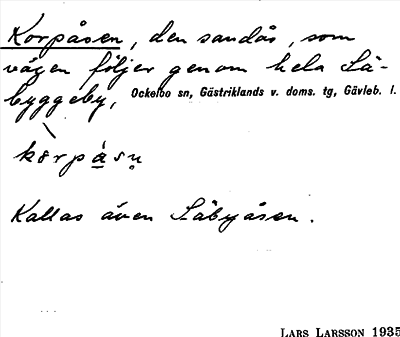 Korpåsen, den sandås, som
vägen följer genom hela Så-
byggeby, Ockelbo sn, Gästriklands v. doms. tg, Gävleb. l.
kȯrpåsn̥
Kallas även Såbyåsen.
LARS LARSSON 1935